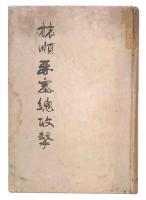 旅順要塞總攻擊